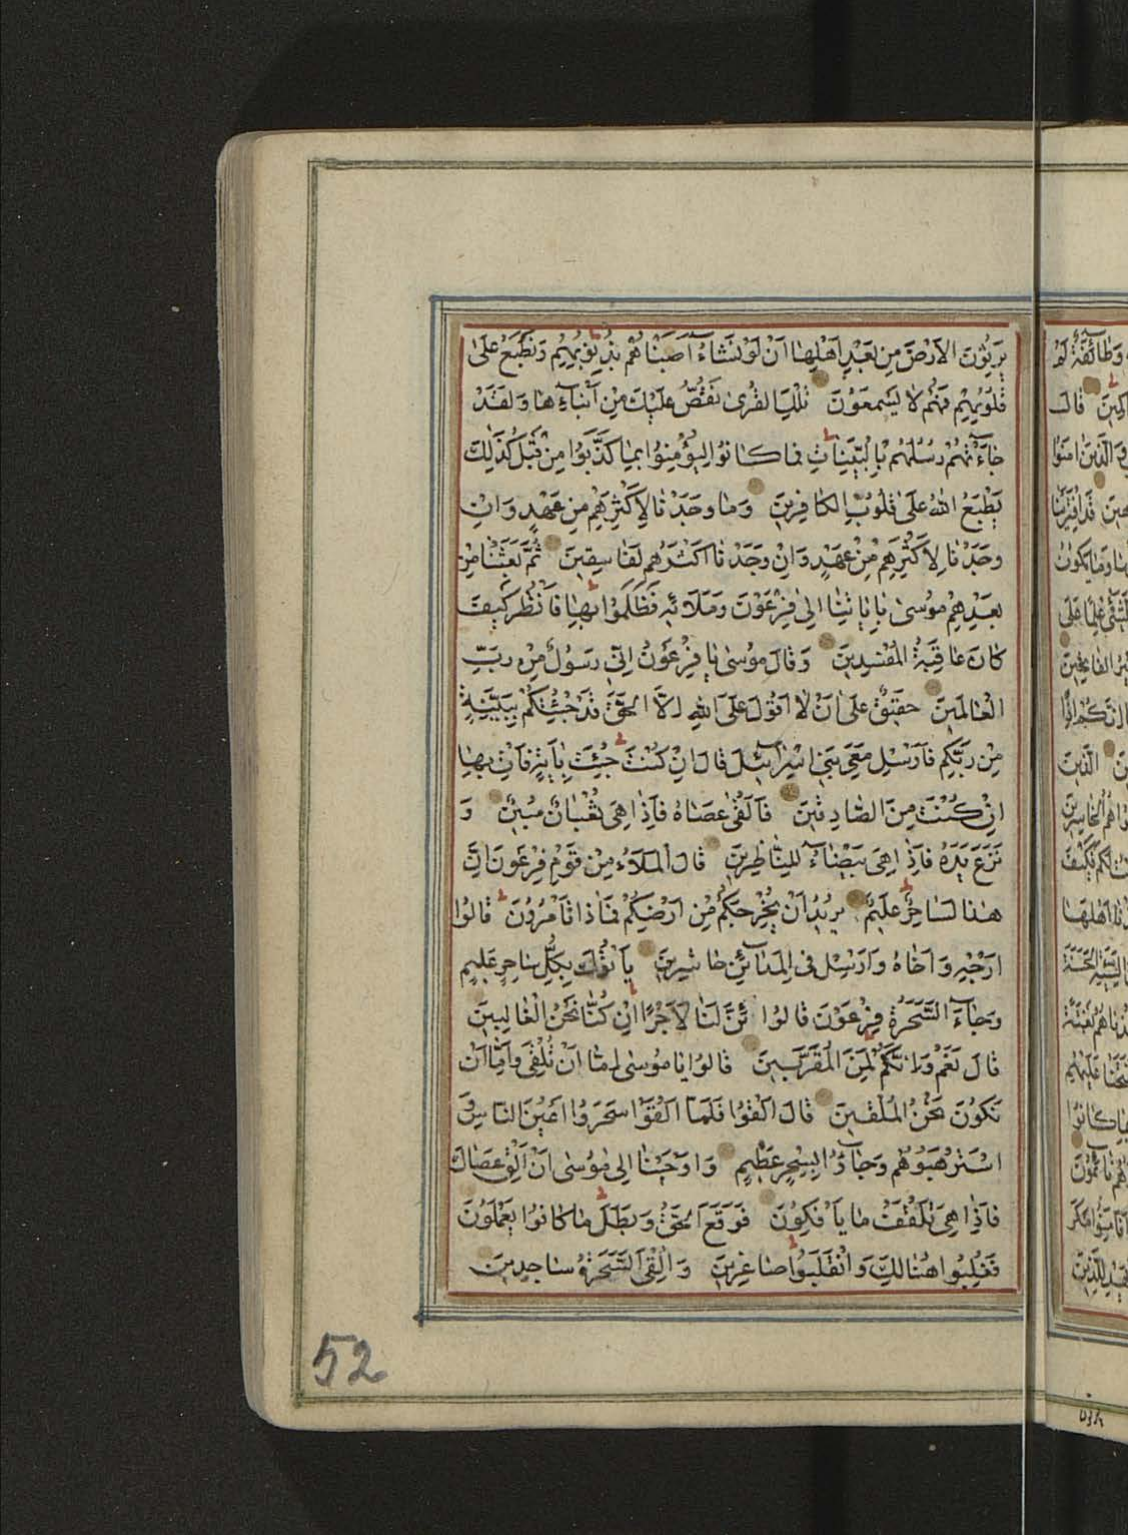 يَرِثُونَ الْاَرْضَ مِنْ بَعْدِ اَهْلِهٰا اَنْ لَوْ نَشٰاءُ اَصَبْنٰاهُمْ بِذُنُوبِهِمْ وَنَطْبَعُ عَلىٰ
قُلُوبِهِمْ فَهُمْ لٰا يَسْمَعُونَ تِلْكَ الْقُرىٰ نَقُصُّ عَلَيْكَ مِنْ اَنْبٰاءِهٰا وَلَقَدْ
جٰاءَتْهُمْ رُسُلُهُمْ بِالْبَيِّنٰاتِ فَمٰا كٰانُوا لِيُؤْمِنُوا بِمٰا كَذَّبُوا مِنْ قَبْلُ كَذٰلِكَ
يَطْبَعُ اللهُ عَلىٰ قُلُوبِ الْكٰافِرِينَ وَمٰا وَجَدْنٰا لِاَكْثَرِهِمْ مِنْ عَهْدٍ وَاِنْ
وَجَدْنٰا لِاَكْثَرِهِمْ مِنْ عَهْدٍ وَاِنْ وَجَدْنٰا اَكْثَرَهُمْ لَفٰاسِقِينَ ثُمَّ بَعَثْنٰا مِنْ
بَعْدِهِمْ مُوسىٰ بِاٰيٰاتِنٰا اِلىٰ فِرْعَوْنَ وَمَلَائِهِ فَظَلَمُوا بِهٰا فَانْظُرْ كَيْفَ
كٰانَ عٰاقِبَةُ الْمُفْسِدِينَ وَقٰالَ مُوسىٰ يٰا فِرْعَوْنُ اِنِّي رَسُولٌ مِنْ رَبِّ
الْعٰالَمِينَ حَقِيقٌ عَلىٰ اَنْ لٰا اَقُولَ عَلَى اللهِ اِلَّا الْحَقَّ قَدْ جِئْتُكُمْ بِبَيِّنَةٍ
مِنْ رَبِّكُمْ فَاَرْسِلْ مَعِيَ بَنِي اِسْرٰائِيلَ قٰالَ اِنْ كُنْتَ جِئْتَ بِاٰيَةٍ فَاْتِ بِهٰا
اِنْ كُنْتَ مِنَ الصّٰادِقِينَ فَاَلْقىٰ عَصٰاهُ فَاِذٰا هِيَ ثُعْبٰانٌ مُبِينٌ وَ
نَزَعَ يَدَهُ فَاِذٰا هِيَ بَيْضٰاءُ لِلنّٰاظِرِينَ قٰالَ الْمَلَاءُ مِنْ قَوْمِ فِرْعَوْنَ اِنَّ
هٰذٰا لَسٰاحِرٌ عَلِيمٌ يُرِيدُ اَنْ يُخْرِجَكُمْ مِنْ اَرْضِكُمْ فَمٰاذٰا تَاْمُرُونَ قٰالُوا
اَرْجِهِ وَاَخٰاهُ وَاَرْسِلْ فِي الْمَدٰائِنِ حٰاشِرِينَ يَاْتُوكَ بِكُلِّ سٰاحِرٍ عَلِيمٍ
وَجٰاءَ السَّحَرَةُ فِرْعَوْنَ قٰالُوا ئِنَّ لَنٰا لَاَجْرًا اِنْ كُنّٰا نَحْنُ الْغٰالِبِينَ
قٰالَ نَعَمْ وَاِنَّكُمْ لَمِنَ الْمُقَرَّبِينَ قٰالُوا يٰا مُوسىٰ اِمّٰا اَنْ تُلْقِيَ وَاِمّٰا اَنْ
نَكُونَ نَحْنُ الْمُلْقِينَ قٰالَ اَلْقُوا فَلَمّٰا اَلْقَوْا سَحَرُوا اَعْيُنَ النّٰاسِ وَ
اسْتَرْهَبُوهُمْ وَجٰاؤُا بِسِحْرٍ عَظِيمٍ وَاَوْحَيْنٰا اِلىٰ مُوسىٰ اَنْ اَلْقِ عَصٰاكَ
فَاِذٰا هِيَ تَلْقَفُ مٰا يَاْفِكُونَ فَوَقَعَ الْحَقُّ وَبَطَلَ مٰا كٰانُوا يَعْمَلُونَ
فَغُلِبُوا هُنٰالِكَ وَانْقَلَبُوا صٰاغِرِينَ وَاُلْقِيَ السَّحَرَةُ سٰاجِدِينَ
52